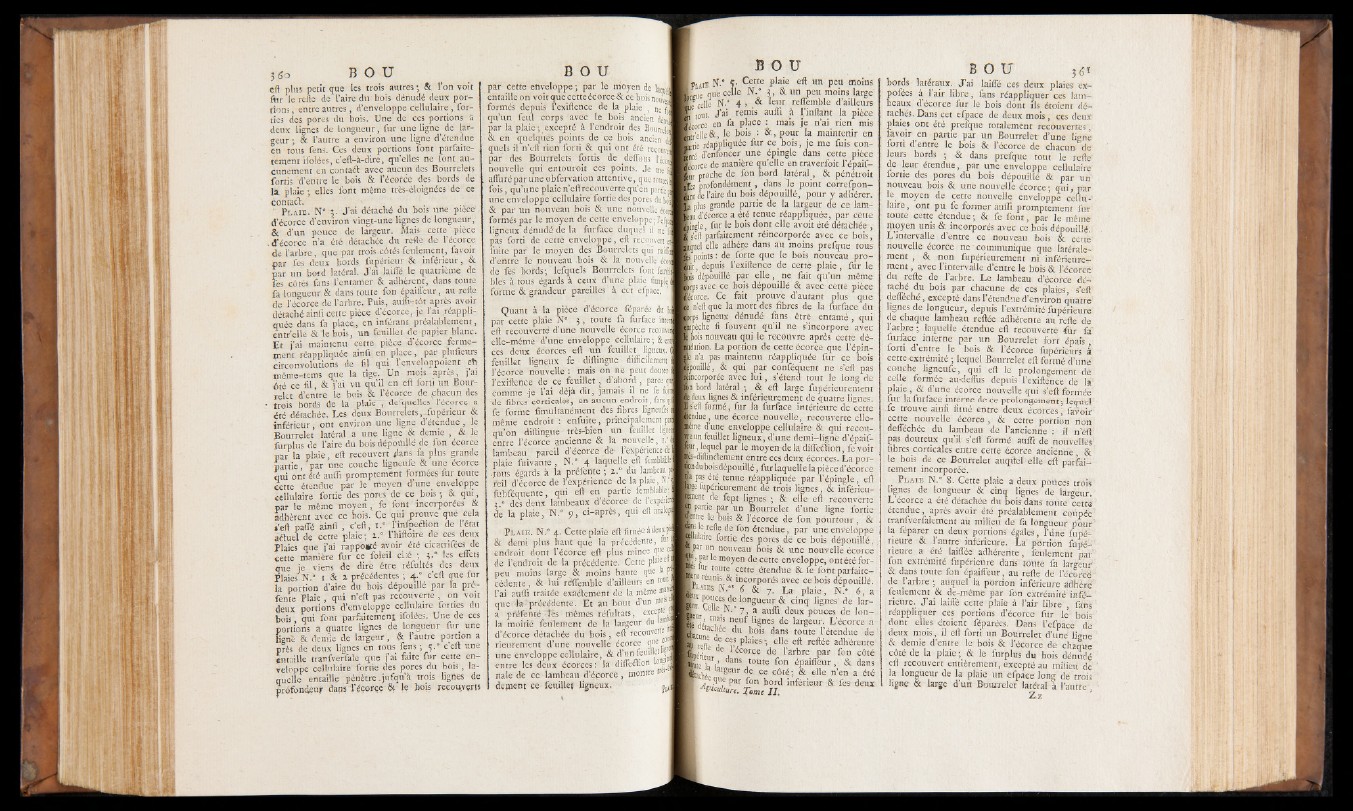 360 B O U
est plus petit que les trois autres ; & l'on voit
sur le reste de l'aire du bois dénudé deux por-
tions, entre autres, d'enveloppe cellulaire, sor-
ties des pores du bois. Une de ces portions a
deux lignes de longueur, sur une ligne de lar-
geur ; & l'autre a environ une ligne d'étendue
en tous sens. Ces deux portions sont parfaite-
tement isolées, c'est-à-dire, qu'elles ne sont au-
cunement en contact avec aucun des Bourrelets
sortis d'entre le bois & l'écorce des bords de
la plaie ; elles sont même très-éloignées de ce
contact.
PLAIE. N° 3. J'ai détaché du bois une pièce
d'écorce d'environ vingt-une lignes de longueur,
& d'un pouce de largeur. Mais cette pièce
d'écorce n'a été détachée du reste de l'écorce
de l'arbre, que par trois côtés seulement, savoir
par ses deux bords supérieur & inférieur, &
par un bord latéral. J'ai laissé le quatrième de
ses côtés sans l'entamer & adhérent, dans toute
sa longueur & dans toute son épaisseur, au reste
de l'écorce de l'arbre. Puis, aussi-tôt après avoir
détaché ainsi cette pièce d'écorce, je l'ai réappli-
quée dans sa place, en insérant préalablement,
entr'elle & le bois, un feuillet de papier blanc.
Et j'ai maintenu cette pièce d'écorce ferme-
ment réappliquée ainsi en place, par plusieurs
circonvolutions de fil qui l'enveloppoient en
même-tems que la tige. Un mois après, j'ai
ôté ce fil, & j'ai vu qu'il en est sorti un Bour-
relet d'entre le bois & l'écorce de chacun des
trois bords de la plaie, desquelles l'écorce a
été détachée. Les deux Bourrelets, supérieur &
inférieur, ont environ une ligne d'étendue, le
Bourrelet latéral a une ligne & demie, & le
surplus de l'aire du bois dépouillé de son écorce
par la plaie, est recouvert dans sa plus grande
partie, par une couche ligneuse & une écorce
qui ont été aussi promptement formées sur toute
cette étendue par le moyen d'une enveloppe
cellulaire sortie des pores de ce bois ; & qui,
par le même moyen, se sont incorporées &
adhèrent avec ce bois. Ce qui prouve que cela
s'est passé ainsi, c'est, 1.° l'inspection de l'état
actuel de cette plaie ; 2.° l'histoire de ces deux
Plaies que j'ai rapporté avoir été cicatrisées de
cette manière sur ce soleil elie ; 3.° les effets
que je viens de dire être résultés des deux
Plaies N.° 1 & 2 précédentes ; 4.° c'est que sur
la portion d'aire du bois dépouillé par la pré-
sente Plaie, qui n'est pas recouverte, on voit
deux portions d'enveloppe cellulaire sorties du
bois, qui sont parfaitement isolées. Une de ces
portions a quatre lignes de longueur sur une
ligne & demie de largeur, & l'autre portion a
près de deux lignes en tous sens ; 5.° c'est une
entaille transversale que j'ai faite sur cette en-
veloppe cellulaire sortie des pores du bois, la-
quelle entaille pénètre jusqu'à trois lignes de
profondeur dans l'écorce & le bois recouverts
B O U
par cette enveloppe ; par le moyen de
entaille on voit que cette écorce & ce bois
formés depuis l'existence de la plaie,
qu'un seul corps avec le bois ancien
par la plaie ; excepté à l'endroit des
& en quelques points de ce bois ancien
quels il n'est rien sorti & qui ont été
par des Bourrelets sortis de dessous
nouvelle qui entouroit ces points. Je
assuré par une observation attentive, que
fois, qu'une plaie n'est recouverte qu'en
une enveloppe cellulaire sortie des pores du
& par un nouveau bois & une nouvelle
formés par le moyen de cette enveloppe ;
ligneux dénudé de la surface duquel il
pas sorti de cette enveloppe, est recouvert
suite par le moyen des Bourrelets qui
d'entre le nouveau bois & la nouvelle
de ses bords ; lesquels Bourrelets sont
bles à tous égards à ceux d'une plaie simple
forme & grandeur pareilles à cet espace.
Quant à la pièce d'écorce séparée du
par cette plaie N° 3, toute sa surface
est recouverte d'une nouvelle écorce
elle-même d'une enveloppe cellulaire ; &
ces deux écorces est un feuillet ligneux.
feuillet ligneux se distingue difficilement
l'écorce nouvelle : mais on ne peut douter
l'existence de ce feuillet, d'abord, parce
comme je l'ai déjà dit, jamais il ne se
de fibres corticales, en aucun endroit,
se forme simultanément des fibres ligneuses
même endroit : ensuite, principalement
qu'on distingue très-bien un feuillet
entre l'écorce ancienne & la nouvelle,
lambeau pareil d'écorce de l'expérience
plaie suivante, N.° 4 laquelle est
tous égards à la présente ; 2.° du lambeau
reil d'écorce de l'expérience de la plaie,
subséquente, qui est en partie semblable
3.° des deux lambeaux d'écorce de l'expérience
de la plaie, N.° 9, ci-après, qui est
PLAIE. N.° 4. Cette plaie est située à deux
& demi plus haut que la précédente,
endroit dont l'écorce est plus mince que
de l'endroit de la précédente. Cette plaie
peu moins large & moins haute que la
cédente, & lui ressemble d'ailleurs en
l'ai aussi traitée exactement de la même
que la précédente. Et au bout d'un mois
a présenté les mêmes résultats, excepté
la moitié seulement de la largeur du
d'écorce détachée du bois, est recouverte
rieurement d'une nouvelle écorce
une enveloppe cellulaire, & d'un feuillet
entre les deux écorces : la dissection
nale de ce lambeau d'écorce, montre
dement ce feuillet ligneux.
B O U
PLAIE N.° 5. Cette plaie est un peu moins
longue que celle N.° 3, & un peu moins large
que celle N.° 4, & leur ressemble d'ailleurs
en tout. J'ai remis aussi à l'instant la pièce
d'écorce en sa place : mais je n'ai rien mis
entr'elle & le bois : &, pour la maintenir en
partie réappliquée sur ce bois, je me suis con-
tenté d'enfoncer une épingle dans cette pièce
d'écorce de manière qu'elle en traversoit l'épais-
seur proche de son bord latéral, & pénétroit
assez profondément, dans le point correspon-
dant de l'aire du bois dépouillé, pour y adhérer.
La plus grande partie de la largeur de ce lam-
beau d'écorce a été tenue réappliquée, par cette
épingle, sur le bois dont elle avoit été détachée,
& s'est parfaitement réincorporée avec ce bois,
auquel elle adhère dans au moins presque tous
ses points : de sorte que le bois nouveau pro-
duit, depuis l'existence de cette plaie, sur le
bois dépouillé par elle, ne fait qu'un même
corps avec ce bois dépouillé & avec cette pièce
d'écorce. Ce fait prouve d'autant plus que
ce n'est que la mort des fibres de la surface du
corps ligneux dénudé sans être entamé, qui
empêche si souvent qu'il ne s'incorpore avec
le bois nouveau qui le recouvre après cette dé-
nudation. La portion de cette écorce que l'épin-
gle n'a pas maintenu réappliquée sur ce bois
dépouillé, & qui par conséquent ne s'est pas
réincorporée avec lui, s'étend tout le long de
son bord latéral ; & est large supérieurement
de deux lignes & inférieurement de quatre lignes.
Il s'est formé, sur la surface intérieure de cette
étendue, une écorce nouvelle, recouverte elle-
même d'une enveloppe cellulaire & qui recou-
vre un feuillet ligneux, d'une demi-ligne d'épais-
seur, lequel par le moyen de la dissection, se voit
très-distinctement entre ces deux écorces. La por-
tion du bois dépouillé, sur laquelle la pièce d'écorce
n'a pas été tenue réappliquée par l'épingle, est
large supérieurement de trois lignes, & inférieu-
rement de sept lignes ; & elle est recouverte
en partie par un Bourrelet d'une ligne sortie
d'entre le bois & l'écorce de son pourtour, &
dans le reste de son étendue, par une enveloppe
cellulaire sortie des pores de ce bois dépouillé,
& par un nouveau bois & une nouvelle écorce
qui, par le moyen de cette enveloppe, ont été for-
més sur toute cette étendue & se sont parfaite-
ment réunis & incorporés avec ce bois dépouillé.
PLAIES N.os 6 & 7. La plaie, N.° 6, a
deux pouces de longueur & cinq lignes de lar-
geur. Celle N.° 7, a aussi deux pouces de lon-
gueur, mais neuf lignes de largeur. L'écorce a
été détachée du bois dans toute l'étendue de
chacune de ces plaies ; elle est restée adhérente
au reste de l'écorce de l'arbre par son côté
supérieur, dans toute son épaisseur, & dans
toute la largeur de ce côté ; & elle n'en a été
détachée que par son bord inférieur & ses deux
Agriculture. Tome II.
B O U 361
bords latéraux. J'ai laissé ces deux plaies ex-
posées à l'air libre, sans réappliquer ces lam-
beaux d'écorce sur le bois dont ils étoient dé-
tachés. Dans cet espace de deux mois, ces deux
plaies ont été presque totalement recouvertes,
savoir en partie par un Bourrelet d'une ligne
sorti d'entre le bois & l'écorce de chacun de
leurs bords ; & dans presque tout le reste
de leur étendue, par une enveloppe cellulaire
sortie des pores du bois dépouillé & par un
nouveau bois & une nouvelle écorce ; qui, par
le moyen de cette nouvelle enveloppe cellu-
laire, ont pu se former aussi promptement sur
toute cette étendue ; & se sont, par le même
moyen unis & incorporés avec ce bois dépouillé.
L'intervalle d'entre ce nouveau bois & cette
nouvelle écorce ne communique que latérale-
ment, & non supérieurement ni inférieure-
ment, avec l'intervalle d'entre le bois & l'écorce
du reste de l'arbre. Le lambeau d'écorce dé-
taché du bois par chacune de ces plaies, s'est
desséché, excepté dans l'étendue d'environ quatre
lignes de longueur, depuis l'extrémité supérieure
de chaque lambeau restée adhérente au reste de
l'arbre ; laquelle étendue est recouverte sur sa
surface interne par un Bourrelet fort épais,
sorti d'entre le bois & l'écorce supérieurs à
cette extrémité ; lequel Bourrelet est formé d'une
couche ligneuse, qui est le prolongement de
celle formée au-dessus depuis l'existence de la
plaie, & d'une écorce nouvelle qui s'est formée
sur la surface interne de ce prolongement ; lequel
se trouve ainsi situé entre deux écorces, savoir
cette nouvelle écorce, & cette portion non
desséchée du lambeau de l'ancienne : il n'est
pas douteux qu'il s'est formé aussi de nouvelles
fibres corticales entre cette écorce ancienne, &
le bois de ce Bourrelet auquel elle est parfai-
tement incorporée.
PLAIE N.° 8. Cette plaie a deux pouces trois
lignes de longueur & cinq lignes de largeur.
L'écorce a été détachée du bois dans toute cette
étendue, après avoir été préalablement coupée
transversalement au milieu de sa longueur pour
la séparer en deux portions égales, l'une supé-
rieure & l'autre inférieure. La portion supé-
rieure a été laissée adhérente, seulement par
son extrémité supérieure dans toute sa largeur
& dans toute son épaisseur, au reste de l'écorce
de l'arbre ; auquel la portion inférieure adhère
seulement & de-même par son extrémité infé-
rieure. J'ai laissé cette plaie à l'air libre, sans
réappliquer ces portions d'écorce sur le bois
dont elles étoient séparées. Dans l'espace de
deux mois, il est sorti un Bourrelet d'une ligne
& demie d'entre le bois & l'écorce de chaque
côté de la plaie ; & le surplus du bois dénudé
est recouvert entièrement, excepté au milieu de
la longueur de la plaie un espace long de trois
ligne & large d'un Bourrelet latéral à l'autre,
Zz